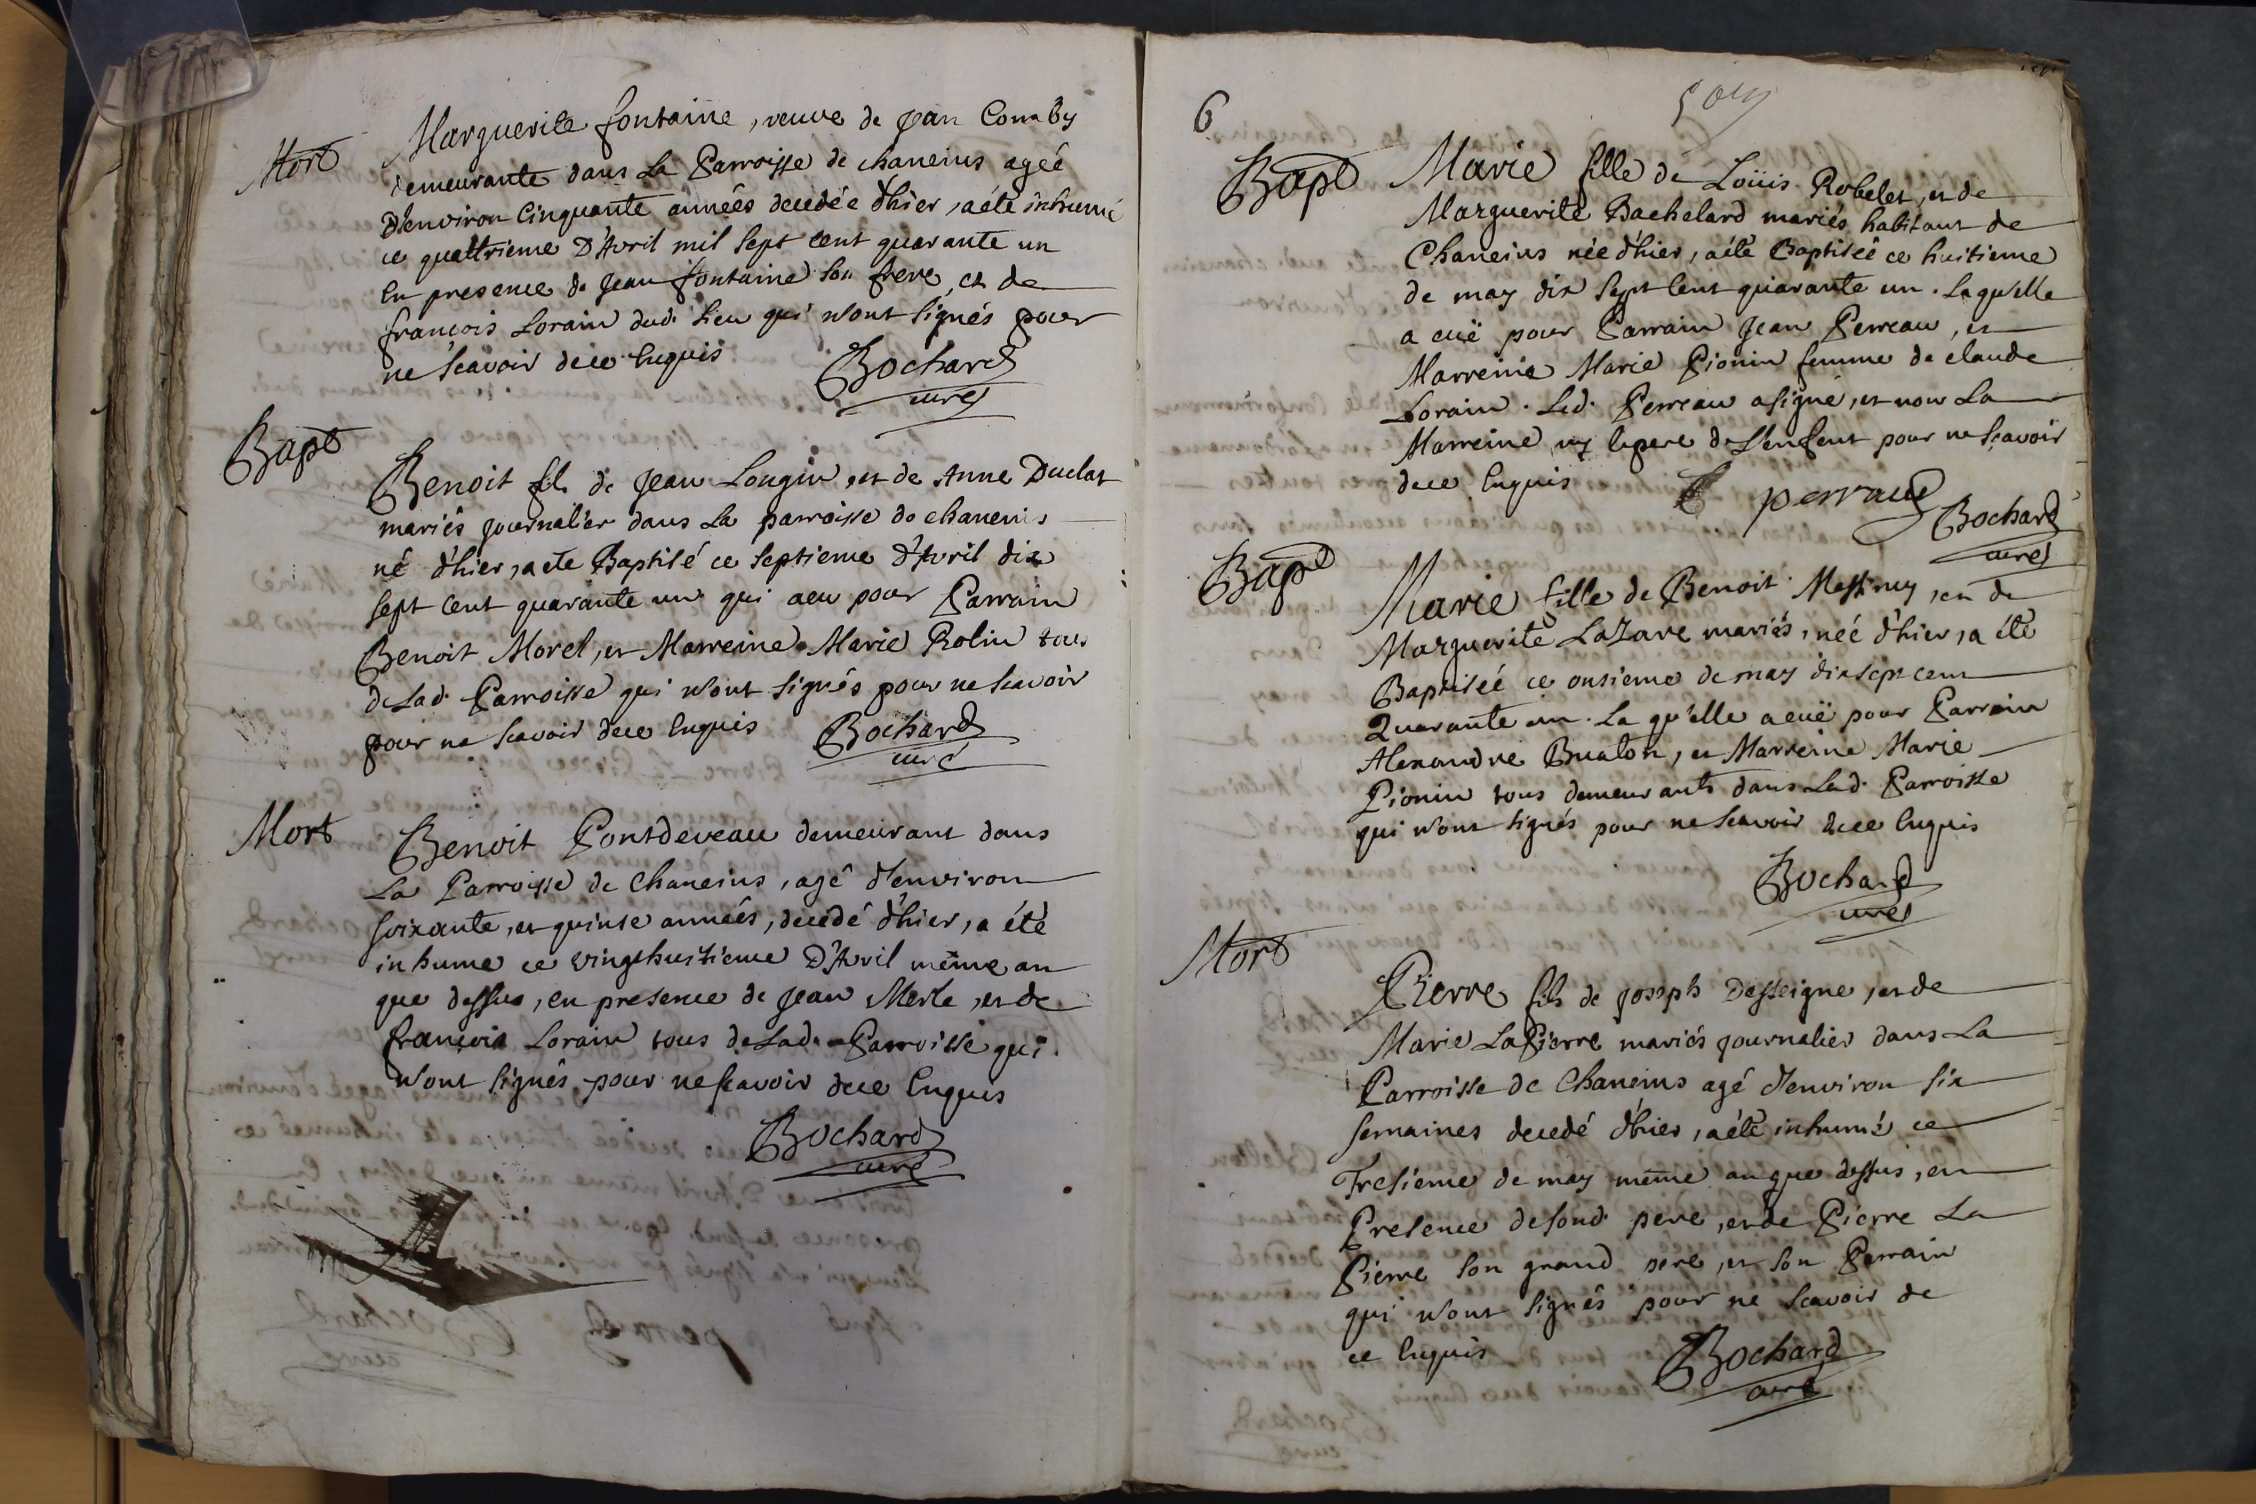 Mort
Marguerite fontaine, veuve de jean Comby
demeurante dans La Parroisse de chaneins ageé
D'environ Cinquante anneês decedée d'hier, a été inhumé
ce quattrieme D'Avril mil sept cent quarante un
En presence de Jean fontaine son frere, et de
françois Lorain dud. Lieu qui n'ont signés pour
ne scavoir de ce Enquis
Bochard
curé
Bapt
Benoit fils de Jean Longin, et de Anne Duclat
mariés journalier dans La parroisse de chaneins
né d'hier, a ete Baptisé ce septieme d'Avril dix
sept cent quarante un qui a eu pour Parrain
Benoit Morel, et Marreine Marie Rolin tous
de Lad. Parroisse qui n'ont signés pour ne scavoir
pour ne scavoir de ce Enquis
Bochard
curé
Mort
Benoit Pontdeveau demeurant dans
La Parroisse de Chaneins, agé d'environ
soixante, et quinse anneés, decedé d'hier, a été
inhume ce vingthuitieme D'Avril même an
que dessus, en presence de Jean Merle, et de
françois Lorain tous de Lad. Parroisse qui
n'ont signés pour ne scavoir de ce Enquis
Bochard
curé
6
Bapt
Marie fille de Loüis Robelet, et de
Marguerite Bachelard mariés habitant de
Chaneins née d'hier, a été Baptiseé ce huitieme
de may dix sept Cent quarante un. Laqu'elle
a euë pour Parrain Jean Perreau, et
Marreine Marie Pionin femme de claude
Lorain. Led. Perreau a signé, et non La
Marreine ny le pere de L'enfent pour ne scavoir
de ce Enquis
perraud
Bochard
curé
Bapt
Marie fille de Benoit Messimy, et de
Marguerite LaZare mariés, neé d'hier, a été
Baptiseé ce onsieme de may dix sept cent
Quarante un. La qu'elle a euë pour Parrain
Alexandre Bualon, et Marreine Marie
Pionin tous demeurants dans Lad. Parroisse
qui n'ont signés pour ne scavoir de ce Enquis
Bochard
curé
Mort
Pierre fils de joseph Desseigne, et de
Marie LaPierre mariés journalier dans La
Parroisse de Chaneins agé d'environ six
semaines decedé d'hier, a été inhumé ce
Tresieme de may même an que dessus, en
Presence de sond. pere, et de Pierre La
Pierre son grand pere, et son Perrain
qui n'ont signés pour ne scavoir de
ce Enquis
Bochard
curé